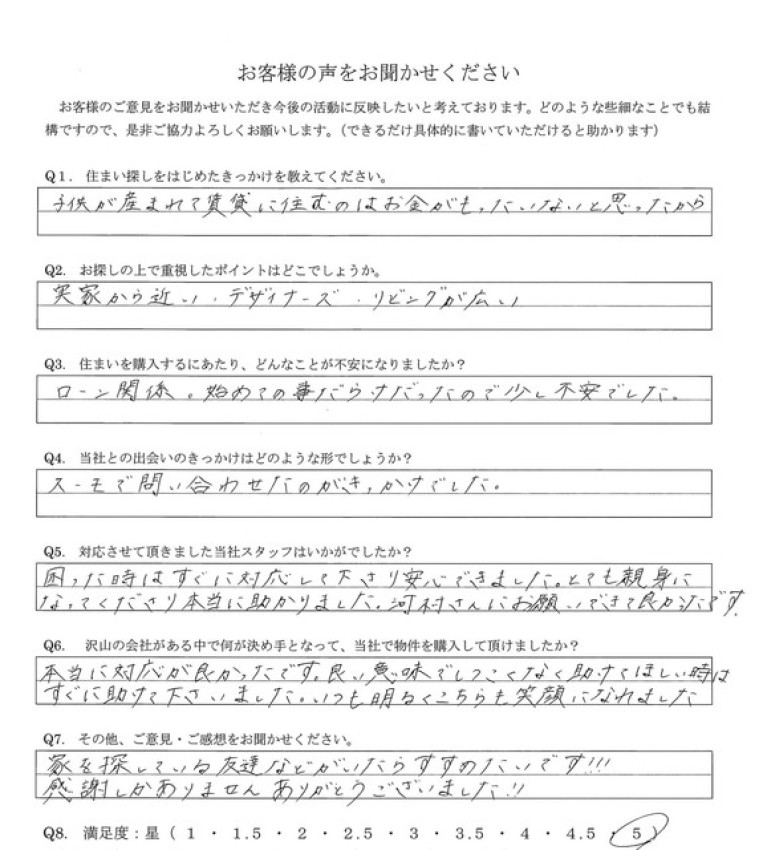 お客様の声をお聞かせください
お客様のご意見をお聞かせいただき今後の活動に反映したいと考えております。どのような些細なことでも結
構ですので、是非ご協力よろしくお願いします。（できるだけ具体的に書いていただけると助かります）
Q1. 住まい探しをはじめたきっかけを教えてください。
子供が産まれて賃貸に住むのはお金がもったいないと思ったから
Q2. お探しの上で重視したポイントはどこでしょうか。
実家から近い・デザイナーズ・リビングが広い
Q3. 住まいを購入するにあたり、どんなことが不安になりましたか？
ローン関係。始めての事だらけだったので少し不安でした。
Q4. 当社との出会いのきっかけはどのような形でしょうか？
スーモで問い合わせたのがきっかけでした。
Q5. 対応させて頂きました当社スタッフはいかがでしたか？
困った時はすぐに対応して下さり安心できました。とても親身に
なってくださり本当に助かりました。河村さんにお願いできて良かったです。
Q6. 沢山の会社がある中で何が決め手となって、当社で物件を購入して頂けましたか？
本当に対応が良かったです。良い意味でしつこくなく助けてほしい時は
すぐに助けて下さいました。いつも明るくこちらも笑顔になれました
Q7. その他、ご意見・ご感想をお聞かせください。
家を探している友達などがいたらすすめたいです!!!
感謝しかありません ありがとうございました!!
Q8. 満足度：星（ 1 ・ 1.5 ・ 2 ・ 2.5 ・ 3 ・ 3.5 ・ 4 ・ 4.5 ・ 5 ）